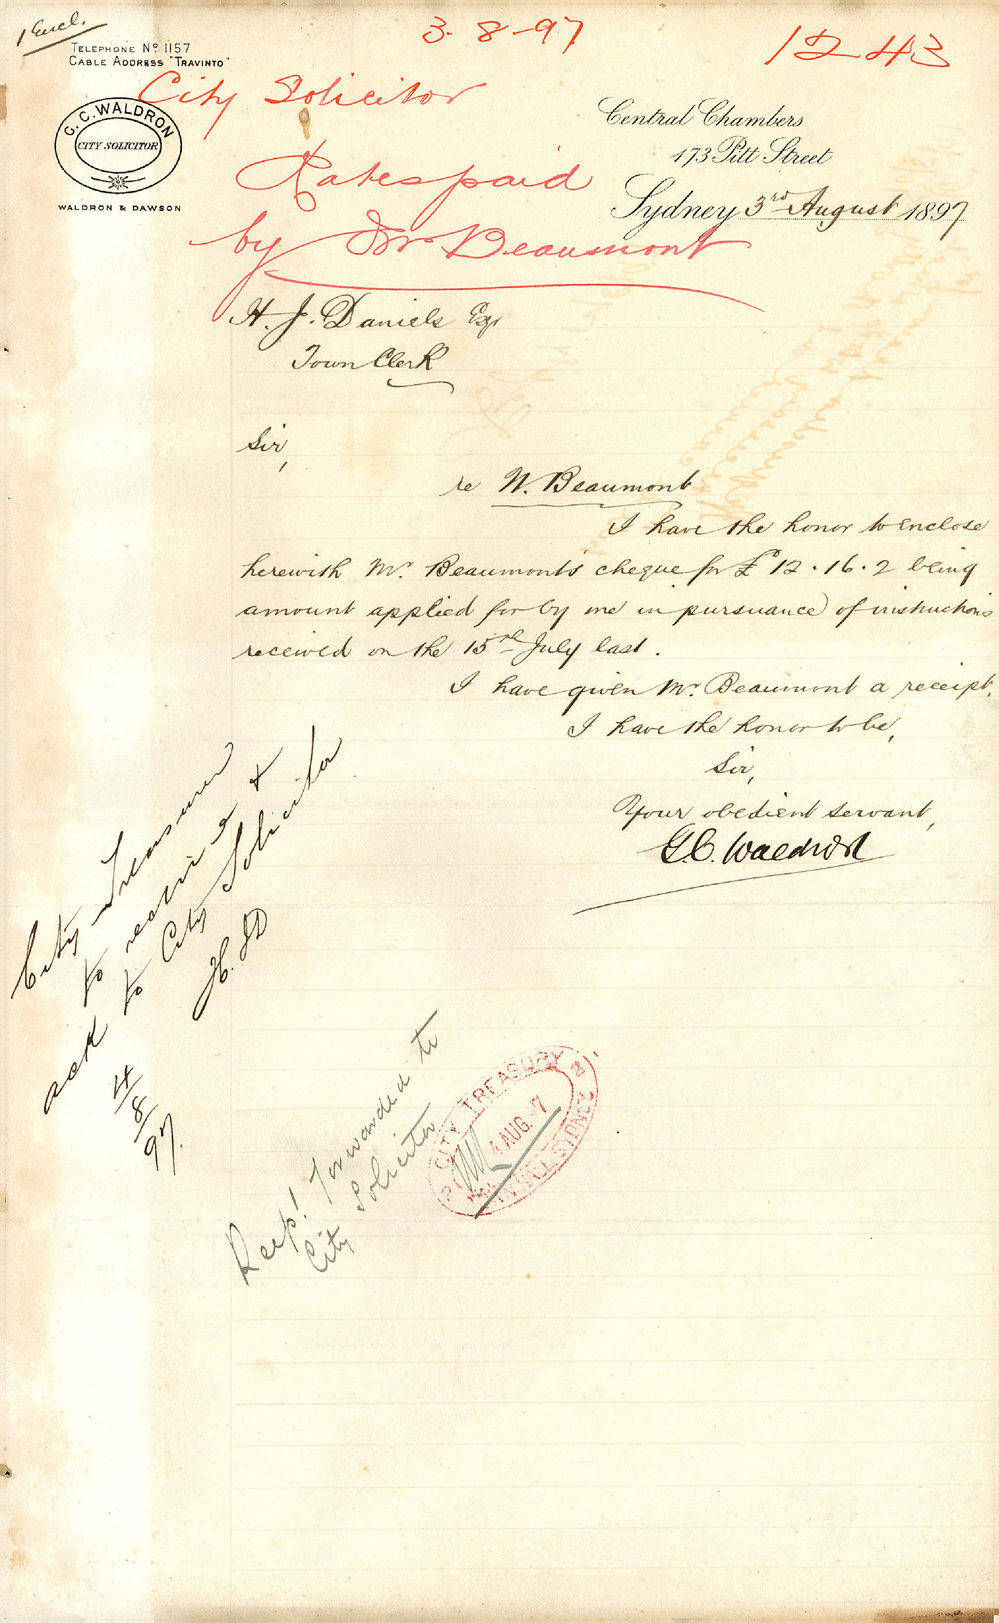 1 Encl.
3-8-97
1243
TELEPHONE No 1157
CABLE ADDRESS "TRAVINTO"
G.C. WALDRON
CITY SOLICITOR
WALDRON & DAWSON
City Solicitor
Rates paid
by Mr Beaumont
Central Chambers
173 Pitt Street
Sydney 3rd August 1897
H. J. Daniels Esqr
Town Clerk
Sir,
re W. Beaumont
I have the honor to enclose
herewith Mr. Beaumont's cheque for £12.16.2 being
amount applied for by me in pursuance of instructions
received on the 15th July last.
I have given Mr. Beaumont a receipt.
I have the honor to be,
Sir,
Your obedient servant,
G.C. Waldron
City Treasurer
to receive &
ack to City Solicitor
H. J D
4/8/97.
Recpt forwarded to
City Solicitor
CITY TREASURY
4 AUG. 97
TOWN HALL SYDNEY